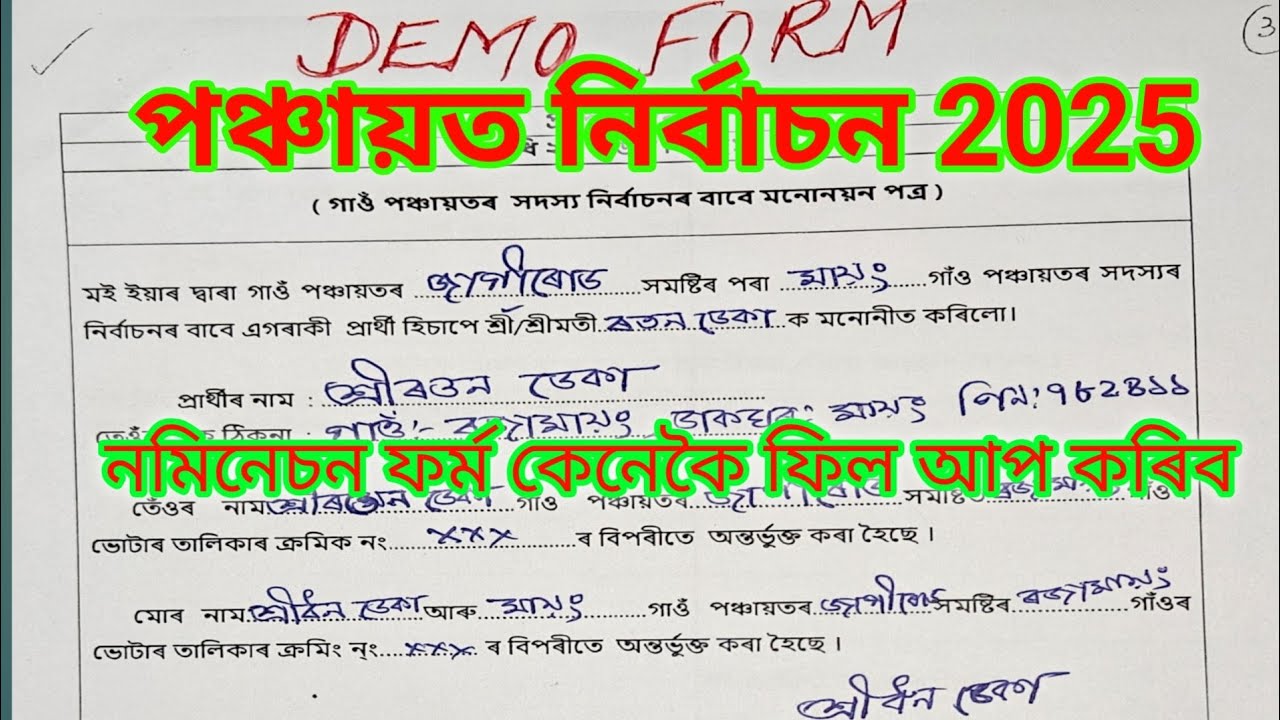 3
DEMO FORM
পঞ্চায়ত নিৰ্বাচন 2025
( গাওঁ পঞ্চায়তৰ সদস্য নিৰ্বাচনৰ বাবে মনোনয়ন পত্ৰ )
মই ইয়াৰ দ্বাৰা গাওঁ পঞ্চায়তৰ জাগীৰোড সমষ্টিৰ পৰা মায়ং গাঁও পঞ্চায়তৰ সদস্যৰ
নিৰ্বাচনৰ বাবে এগৰাকী প্ৰাৰ্থী হিচাপে শ্ৰী/শ্ৰীমতী ৰতন ডেকা ক মনোনীত কৰিলো।
প্ৰাৰ্থীৰ নাম : শ্ৰী ৰতন ডেকা
ঠিকনা : গাওঁ:- ৰজামায়ং ডাকঘৰ: মায়ং পিন: ৭৮২৪১১
নমিনেচন ফৰ্ম কেনেকৈ ফিল আপ কৰিব
তেওঁৰ নাম শ্ৰী ৰতন ডেকা গাওঁ পঞ্চায়তৰ জাগীৰোড সমষ্টিৰ
ভোটাৰ তালিকাৰ ক্ৰমিক নং xxx ৰ বিপৰীতে অন্তৰ্ভুক্ত কৰা হৈছে ।
মোৰ নাম শ্ৰী ধন ডেকা আৰু মায়ং গাওঁ পঞ্চায়তৰ জাগীৰোড সমষ্টিৰ ৰজামায়ং গাঁওৰ
ভোটাৰ তালিকাৰ ক্ৰমিং ন্ং xxx ৰ বিপৰীতে অন্তৰ্ভুক্ত কৰা হৈছে ।
শ্ৰী ধন ডেকা